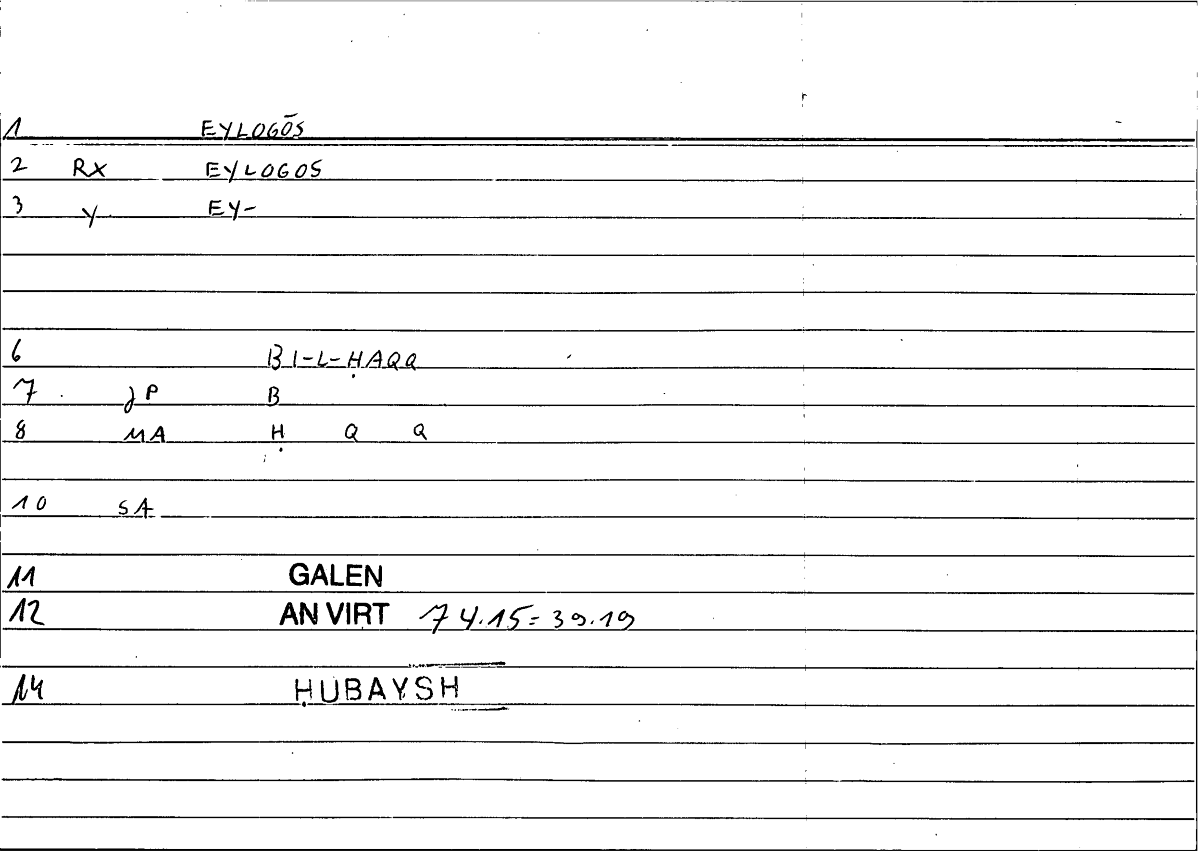 1 EYLOGŌS
2 RX EYLOGOS
3 Y EY-
6 BI-L-ḤAQQ
7 JP B
8 MA Ḥ Q Q
10 SA
11 GALEN
12 AN VIRT 74.15=39.19
14 ḤUBAYSH